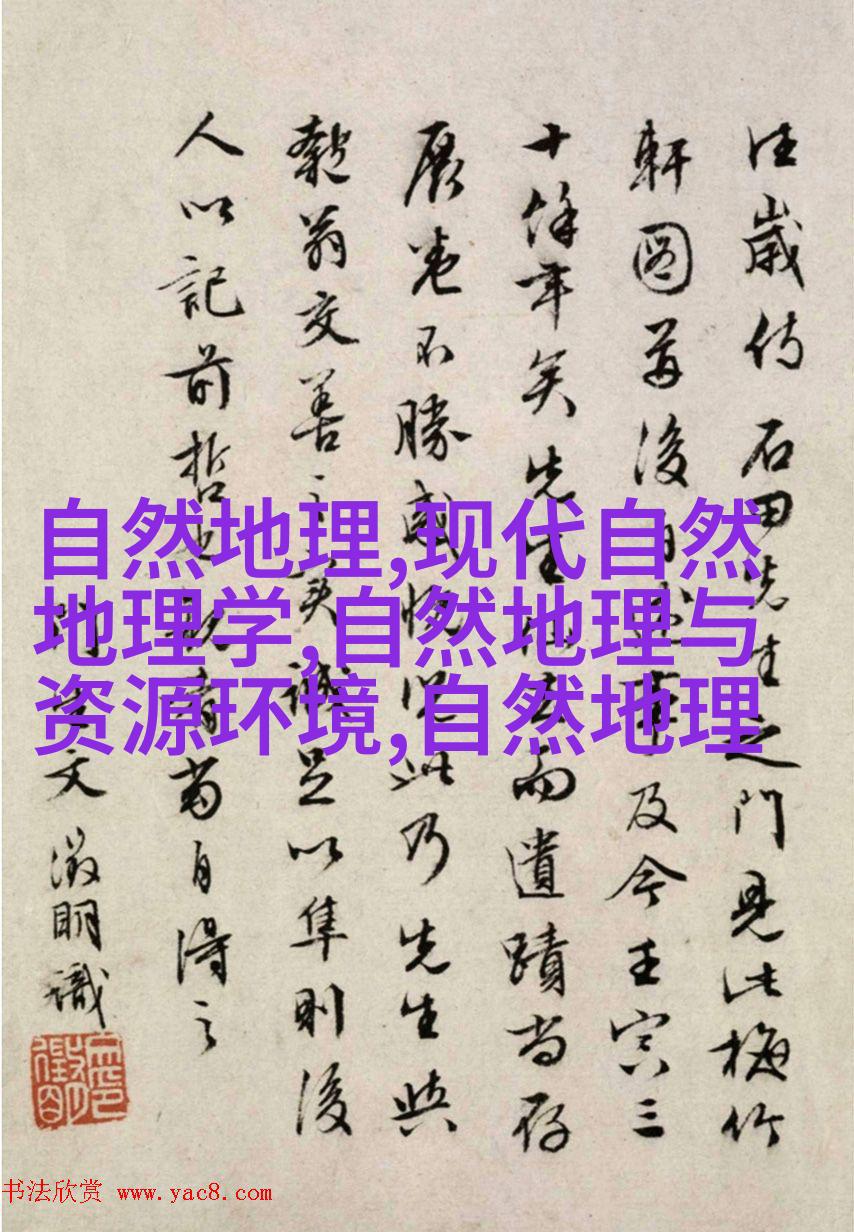 往歲侍 石田先生之門見此梅竹
軒圖 後 及今壬寅三
十餘年矣先生 而遺蹟尚存
展卷不勝感 此乃先生與
翁交善 誠足以準則後
人以記前哲 當自得之
文徵明識
自然地理,现代自然
地理学,自然地理与
资源环境,自然地理
书法欣赏 www.yac8.com